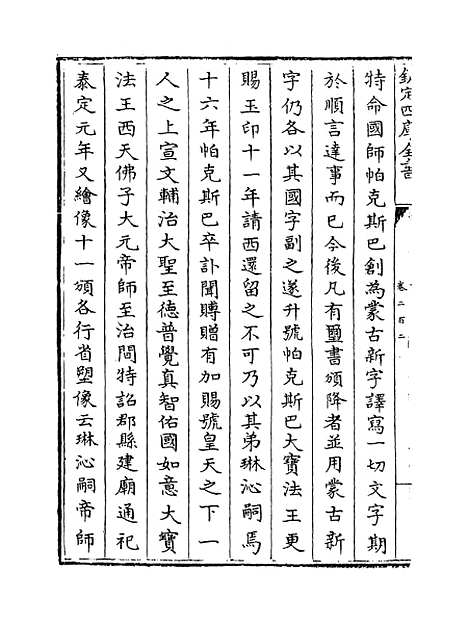 欽定四庫全書
卷二百二
特命國師帕克斯巴創為蒙古新字譯寫一切文字期
於順言達事而已今後凡有璽書頒降者並用蒙古新
字仍各以其國字副之遂升號帕克斯巴大寶法王更
賜玉印十一年請西還留之不可乃以其弟琳沁嗣焉
十六年帕克斯巴卒訃聞賻贈有加賜號皇天之下一
人之上宣文輔治大聖至德普覺真智佑國如意大寶
法王西天佛子大元帝師至治間特詔郡縣建廟通祀
泰定元年又繪像十一頒各行省塑像云琳沁嗣帝師